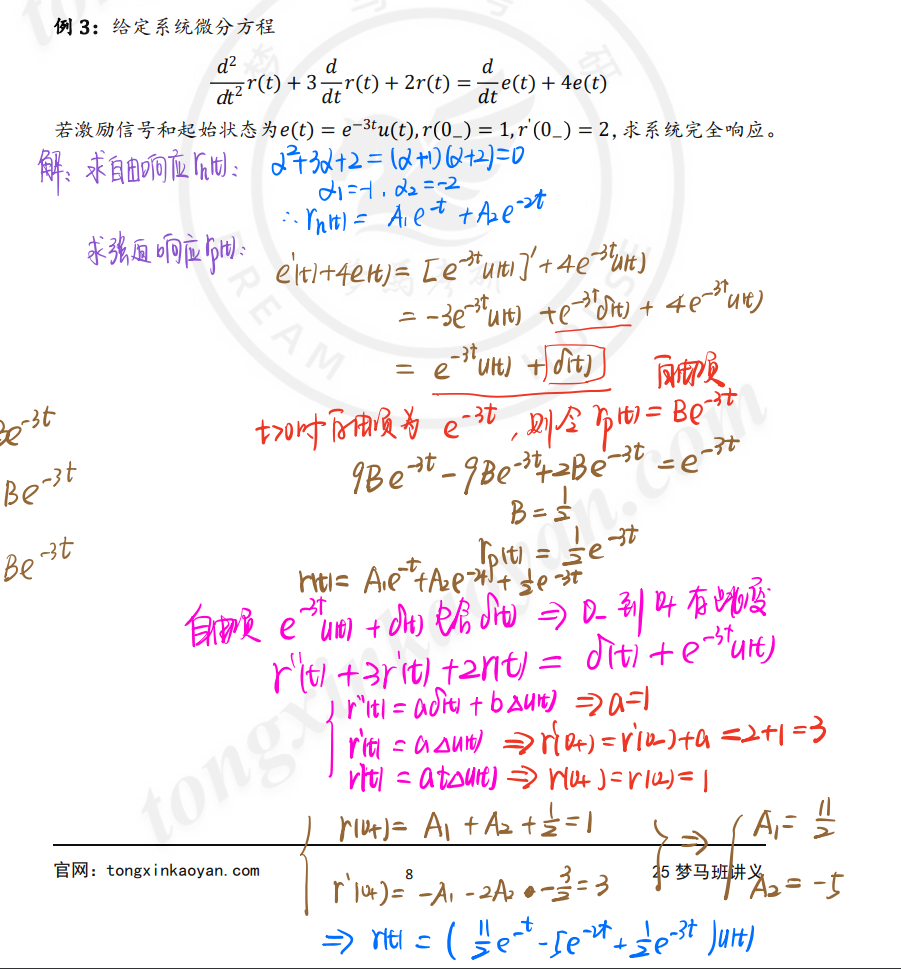 例 3：给定系统微分方程
d²/dt² r(t) + 3 d/dt r(t) + 2r(t) = d/dt e(t) + 4e(t)
若激励信号和起始状态为e(t) = e⁻³ᵗu(t), r(0₋) = 1, r'(0₋) = 2, 求系统完全响应。
解: 求自由响应rₕ(t): α²+3α+2 = (α+1)(α+2)=0
α₁=-1, α₂=-2
∴ rₕ(t) = A₁e⁻ᵗ + A₂e⁻²ᵗ
求强迫响应rₚ(t):
e'(t)+4e(t) = [e⁻³ᵗu(t)]' + 4e⁻³ᵗu(t)
= -3e⁻³ᵗu(t) + e⁻³ᵗδ(t) + 4e⁻³ᵗu(t)
= e⁻³ᵗu(t) + δ(t) 自由项
Be⁻³ᵗ
t>0时自由项为 e⁻³ᵗ, 则令 rₚ(t) = Be⁻³ᵗ
Be⁻³ᵗ
9Be⁻³ᵗ - 9Be⁻³ᵗ + 2Be⁻³ᵗ = e⁻³ᵗ
B = 1/2
Be⁻³ᵗ
rₚ(t) = 1/2 e⁻³ᵗ
r(t) = A₁e⁻ᵗ + A₂e⁻²ᵗ + 1/2 e⁻³ᵗ
自由项 e⁻³ᵗu(t) + δ(t) 包含δ(t) ⇒ 0₋ 到 0₊ 有跳变
r''(t) + 3r'(t) + 2r(t) = δ(t) + e⁻³ᵗu(t)
r''(t) = aδ(t) + bΔu(t) ⇒ a=1
r'(t) = aΔu(t) ⇒ r'(0₊) = r'(0₋) + a = 2+1 = 3
r(t) = atΔu(t) ⇒ r(0₊) = r(0₋) = 1
r(0₊) = A₁ + A₂ + 1/2 = 1 ⇒ A₁ = 11/2
官网：tongxinkaoyan.com 8 25 梦马班讲义
r'(0₊) = -A₁ - 2A₂ - 3/2 = 3 A₂ = -5
⇒ r(t) = ( 11/2 e⁻ᵗ - 5e⁻²ᵗ + 1/2 e⁻³ᵗ )u(t)
DREAM HORSE
tongxinkaoyan.com